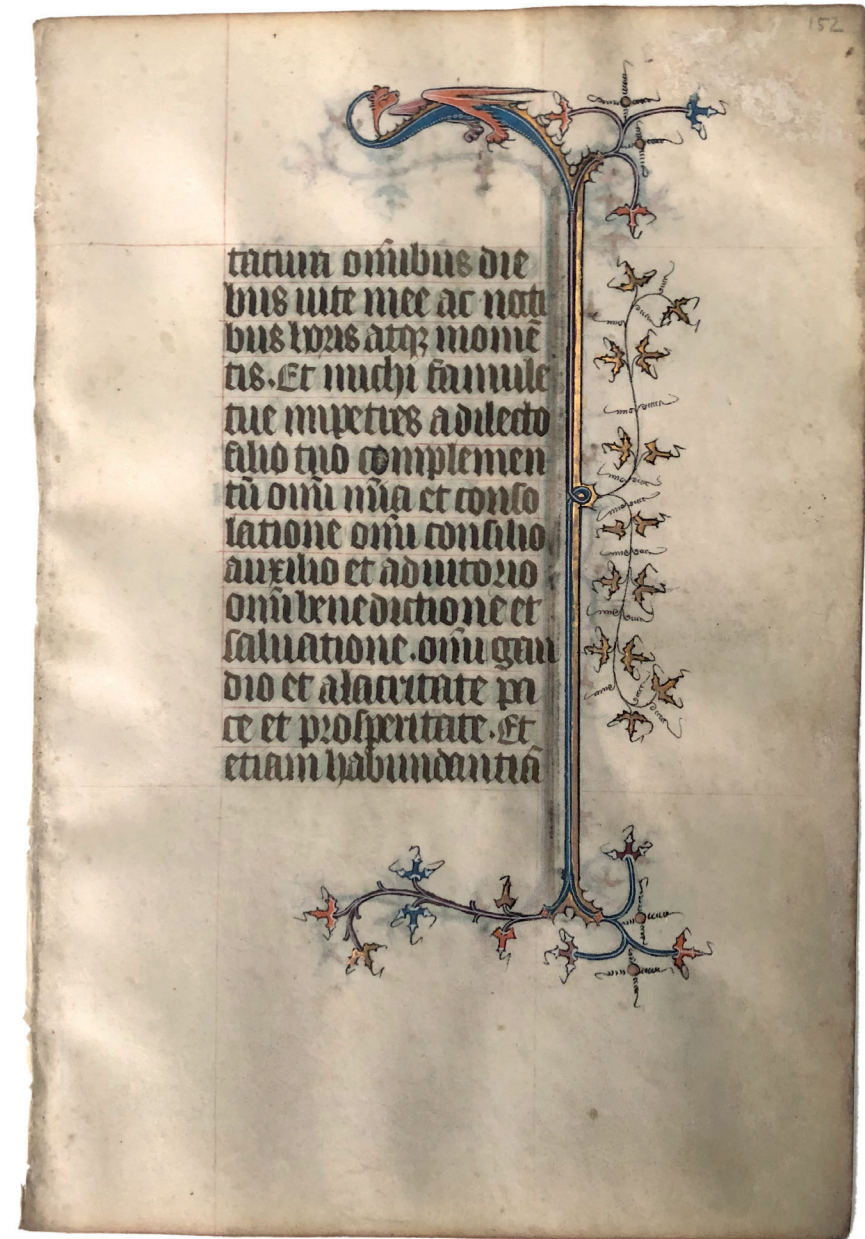 152
tatum om̄ibus die
bus uite mee ac nocti
bus horis atqꝫ momē
tis. Et michi famule
tue impetres a dilecto
filio tuo complemen
tū om̄i
et conso
latione om̄i consilio
auxilio et adiutorio
om̄i benedictione et
saluatione. om̄i gau
dio et alacritate pa
ce et prosperitate. Et
etiam habundantiā